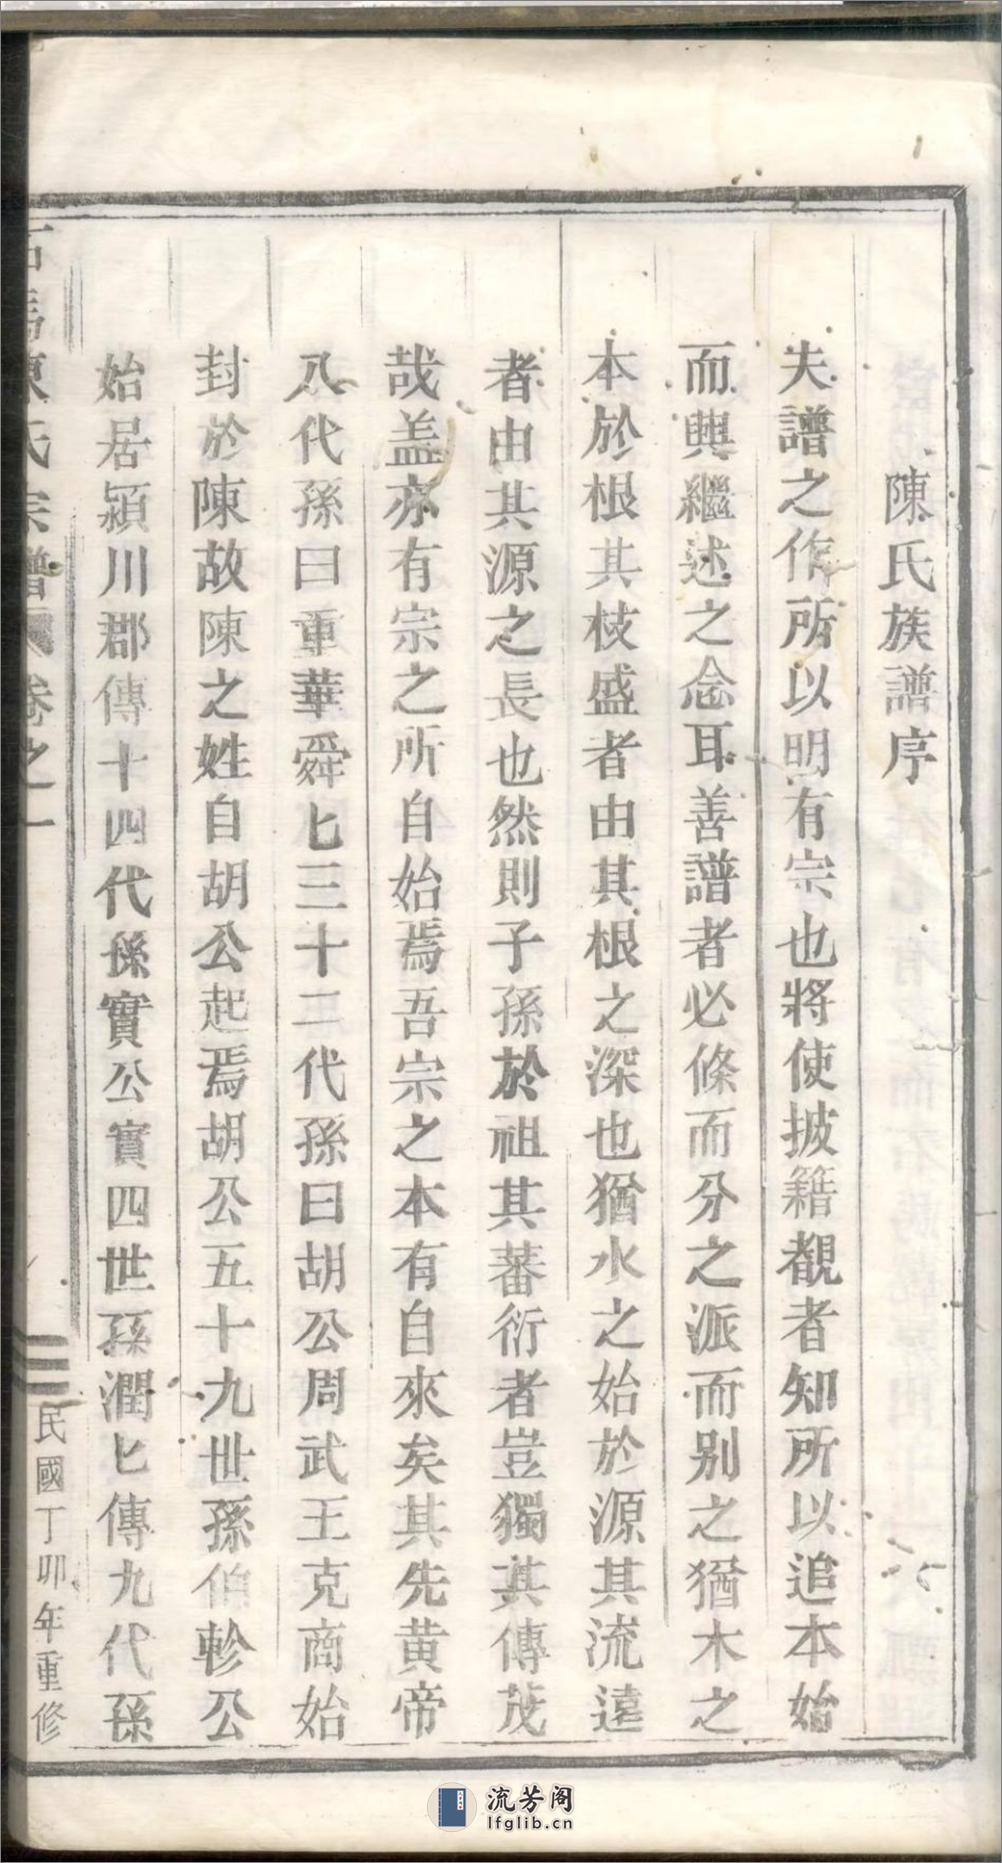 陳氏族譜序
夫譜之作所以明有宗也將使披籍覩者知所以追本始
而興繼述之念耳善譜者必條而分之派而别之猶木之
本於根其枝盛者由其根之深也猶水之始於源其流遠
者由其源之長也然則子孫於祖其蕃衍者豈獨其傳茂
哉盖亦有宗之所自始焉吾宗之本有自來矣其先黄帝
八代孫曰重華舜匕三十二代孫曰胡公周武王克商始
封於陳故陳之姓自胡公起焉胡公五十九世孫伯軫公
始居潁川郡傳十四代孫實公實四世孫潤匕傳九代孫
石馬陳氏宗譜 卷之一
民國丁卯年重修
流芳阁
lfglib.cn